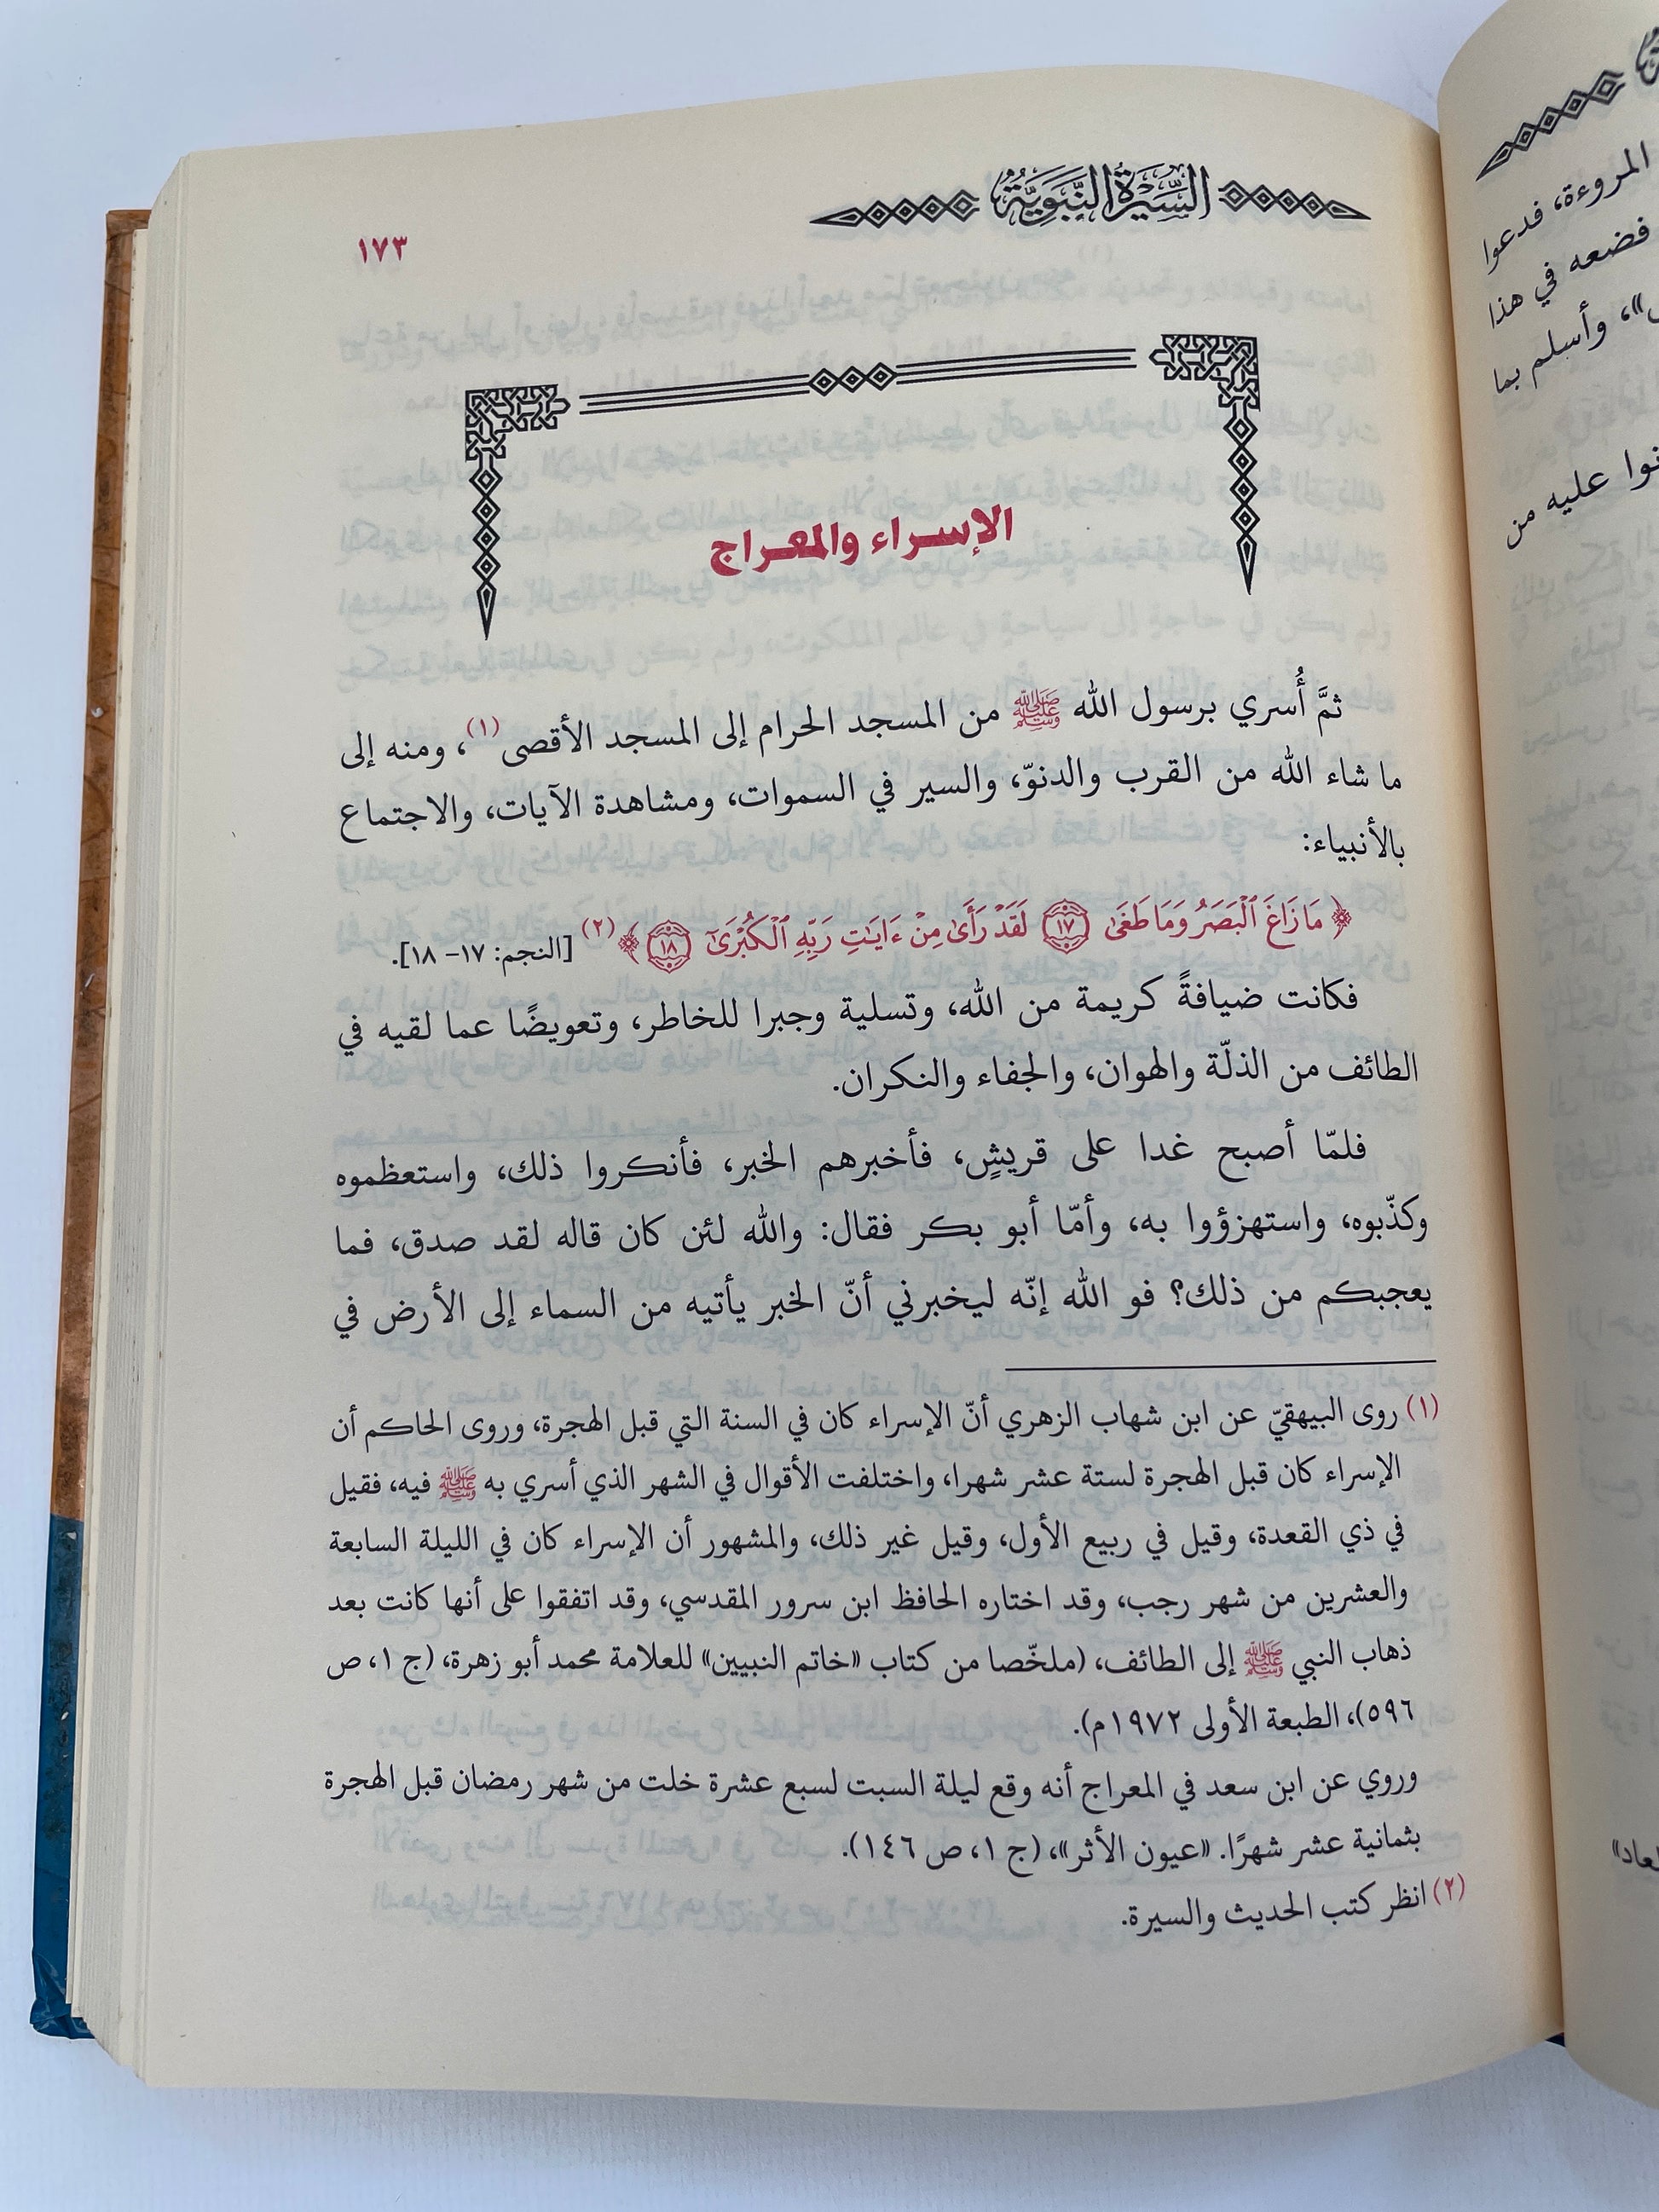 السِّيرَةُ النَّبَوِيَّةُ
١٧٣
الإسراء والمعراج
ثمَّ أُسري برسول الله ﷺ من المسجد الحرام إلى المسجد الأقصى(١)، ومنه إلى
ما شاء الله من القرب والدنوّ، والسير في السموات، ومشاهدة الآيات، والاجتماع
بالأنبياء:
﴿مَا زَاغَ ٱلْبَصَرُ وَمَا طَغَىٰ ١٧ لَقَدْ رَأَىٰ مِنْ ءَايَٰتِ رَبِّهِ ٱلْكُبْرَىٰٓ ١٨﴾(٢) [النجم: ١٧- ١٨].
فكانت ضيافةً كريمة من الله، وتسلية وجبرا للخاطر، وتعويضًا عما لقيه في
الطائف من الذلّة والهوان، والجفاء والنكران.
فلمّا أصبح غدا على قريشٍ، فأخبرهم الخبر، فأنكروا ذلك، واستعظموه
وكذّبوه، واستهزؤوا به، وأمّا أبو بكر فقال: والله لئن كان قاله لقد صدق، فما
يعجبكم من ذلك؟ فو الله إنّه ليخبرني أنّ الخبر يأتيه من السماء إلى الأرض في
(١) روى البيهقيّ عن ابن شهاب الزهري أنّ الإسراء كان في السنة التي قبل الهجرة، وروى الحاكم أن
الإسراء كان قبل الهجرة لستة عشر شهرا، واختلفت الأقوال في الشهر الذي أسري به ﷺ فيه، فقيل
في ذي القعدة، وقيل في ربيع الأول، وقيل غير ذلك، والمشهور أن الإسراء كان في الليلة السابعة
والعشرين من شهر رجب، وقد اختاره الحافظ ابن سرور المقدسي، وقد اتفقوا على أنها كانت بعد
ذهاب النبي ﷺ إلى الطائف، (ملخّصا من كتاب «خاتم النبيين» للعلامة محمد أبو زهرة، (ج ١، ص
٥٩٦)، الطبعة الأولى ١٩٧٢م).
وروي عن ابن سعد في المعراج أنه وقع ليلة السبت لسبع عشرة خلت من شهر رمضان قبل الهجرة
بثمانية عشر شهرًا. «عيون الأثر»، (ج ١، ص ١٤٦).
(٢) انظر كتب الحديث والسيرة.
المروءة، فدعوا
فضعه في هذا
وأسلم بما
عليه من